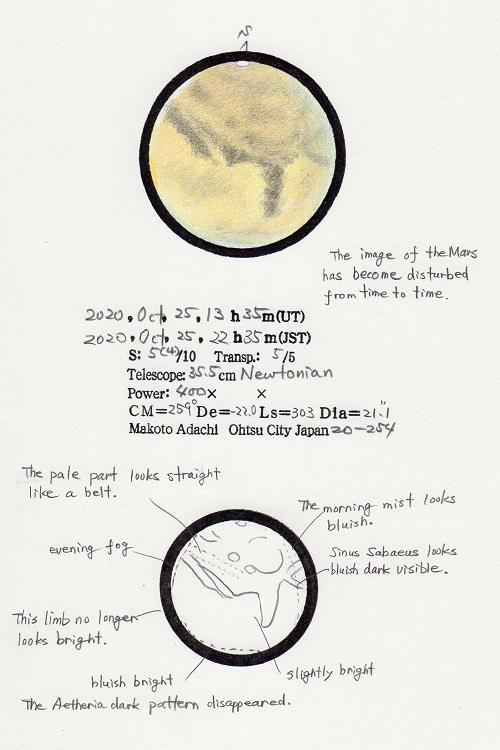 S
The image of the Mars
has become disturbed
from time to time.
2020, Oct, 25, 13 h 35m(UT)
2020, Oct, 25, 22 h 35m(JST)
S: 5(4)/10 Transp.: 5/5
Telescope: 35.5cm Newtonian
Power: 400× ×
CM=259° De=-22.0 Ls=303 Dia=21.″1
Makoto Adachi Ohtsu City Japan 20-254
The pale part looks straight
like a belt.
The morning mist looks
bluish.
evening fog
Sinus Sabaeus looks
bluish dark visible.
This limb no longer
looks bright.
slightly bright
bluish bright
The Aetheria dark pattern disappeared.